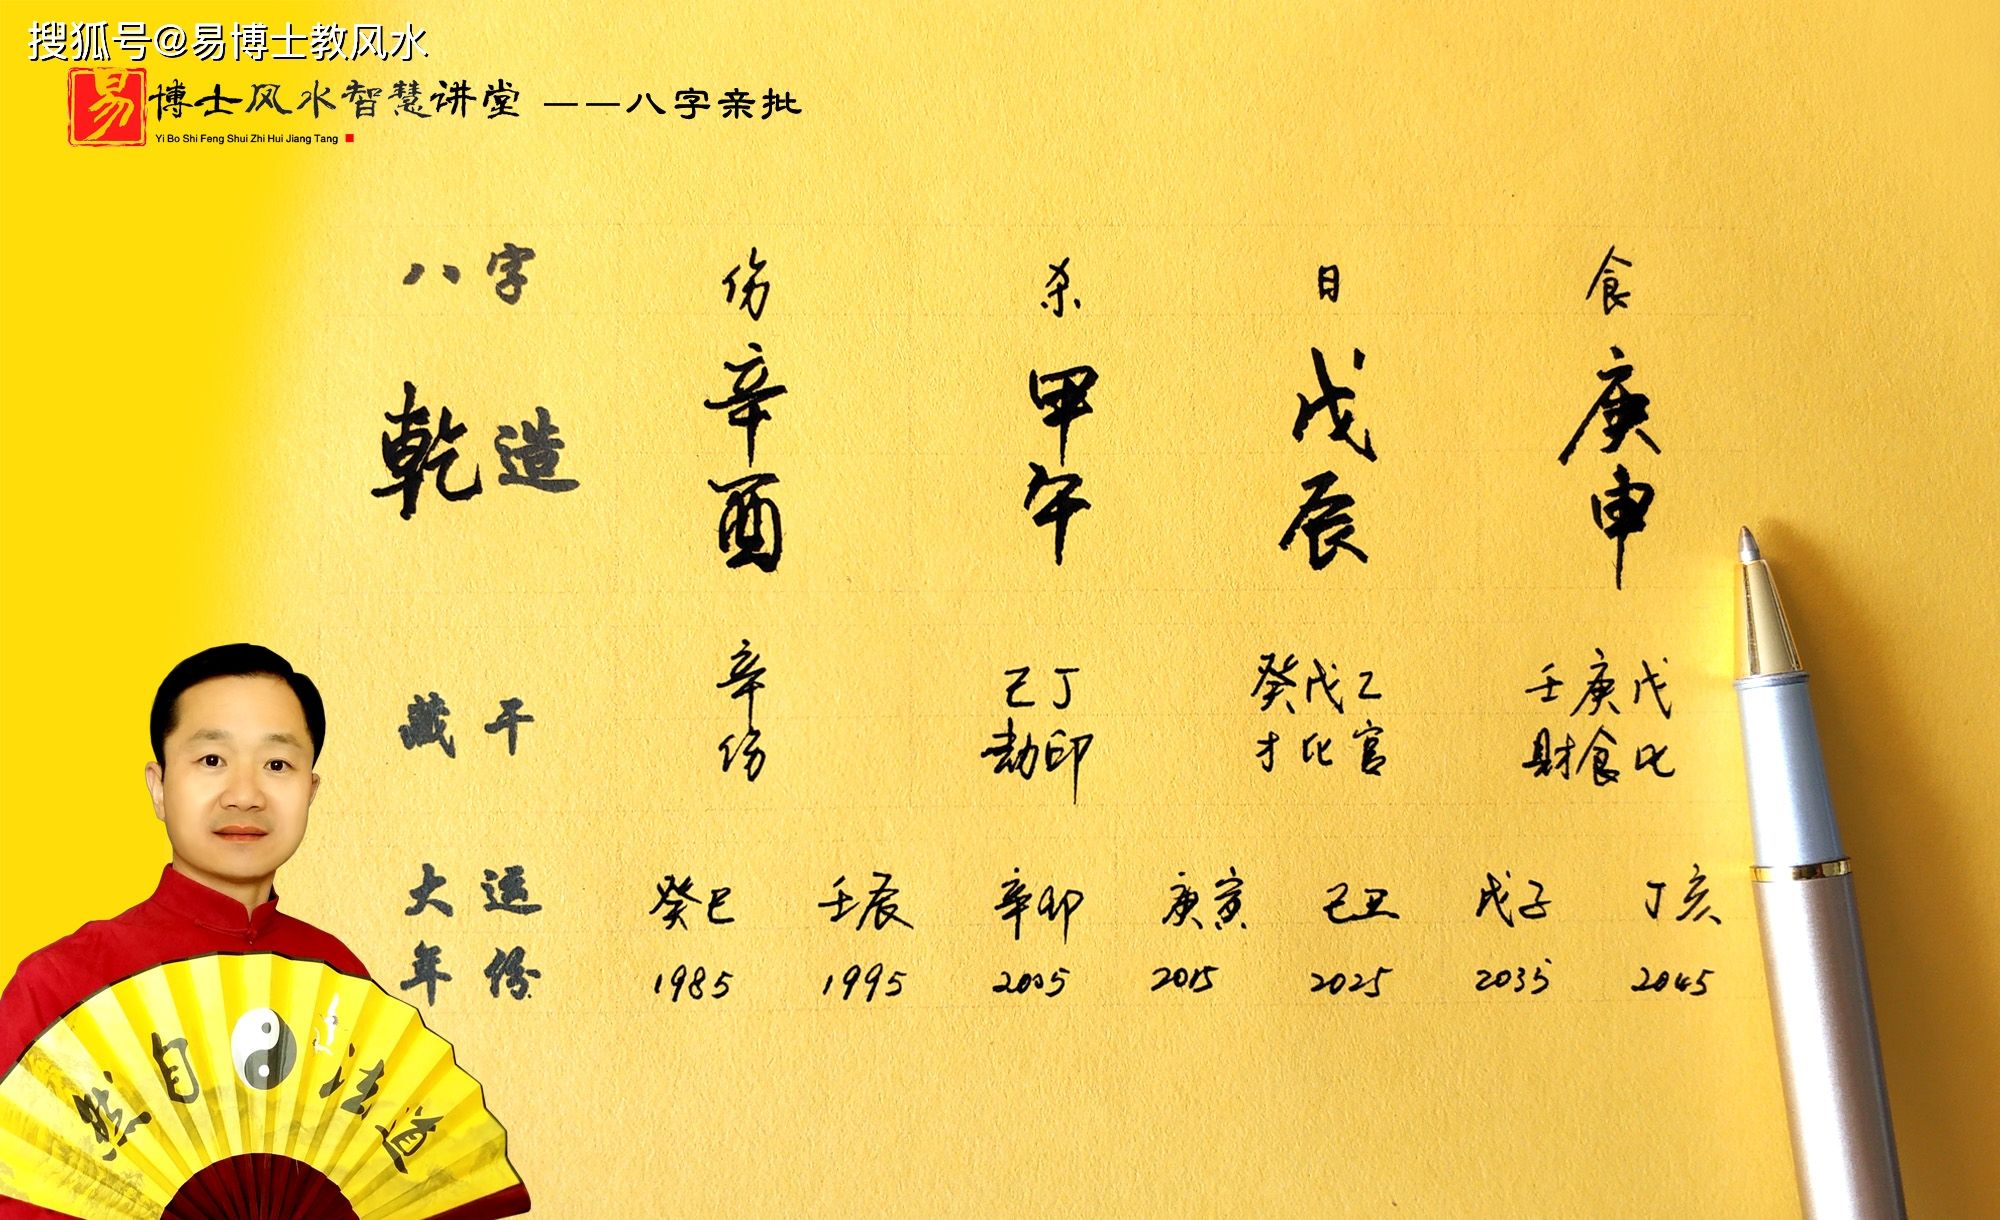 搜狐号@易博士教风水
易博士风水智慧讲堂 ——八字亲批
Yi Bo Shi Feng Shui Zhi Hui Jiang Tang
八字 伤 杀 日 食
乾造 辛 甲 戊 庚
酉 午 辰 申
藏干 辛 己丁 癸戊乙 壬庚戊
伤 劫印 才比官 财食比
大运 癸巳 壬辰 辛卯 庚寅 己丑 戊子 丁亥
年份 1985 1995 2005 2015 2025 2035 2045
道法自然